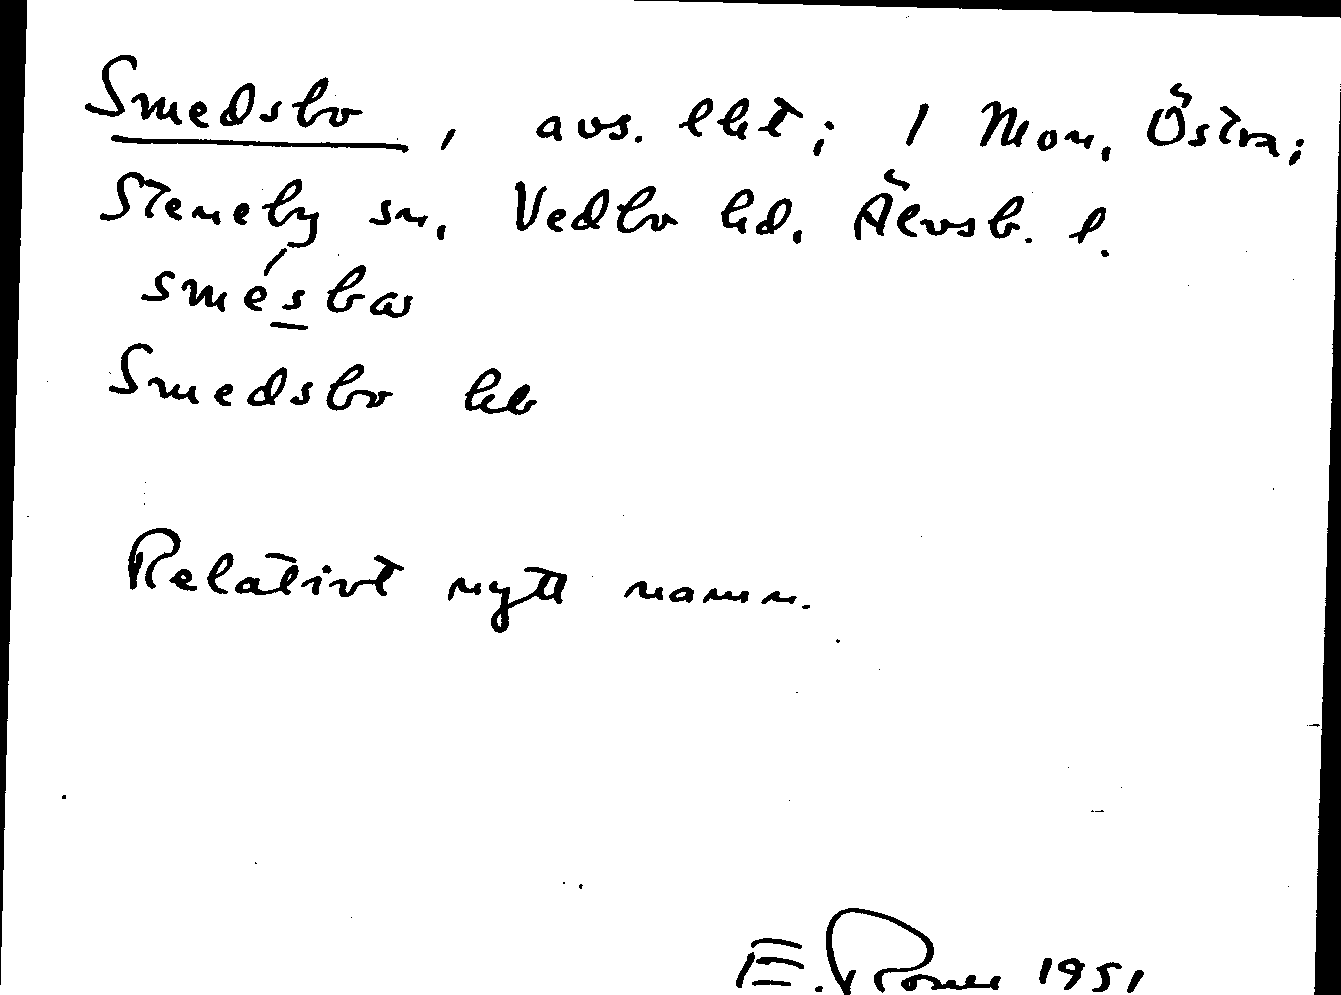 Smedsbo, avs. lht; 1 Mon, Östra;
Steneby sn, Vedbo hd. Älvsb. l.
smésbω
Smedsbo hb
Relativt nytt namn.
E. 1951